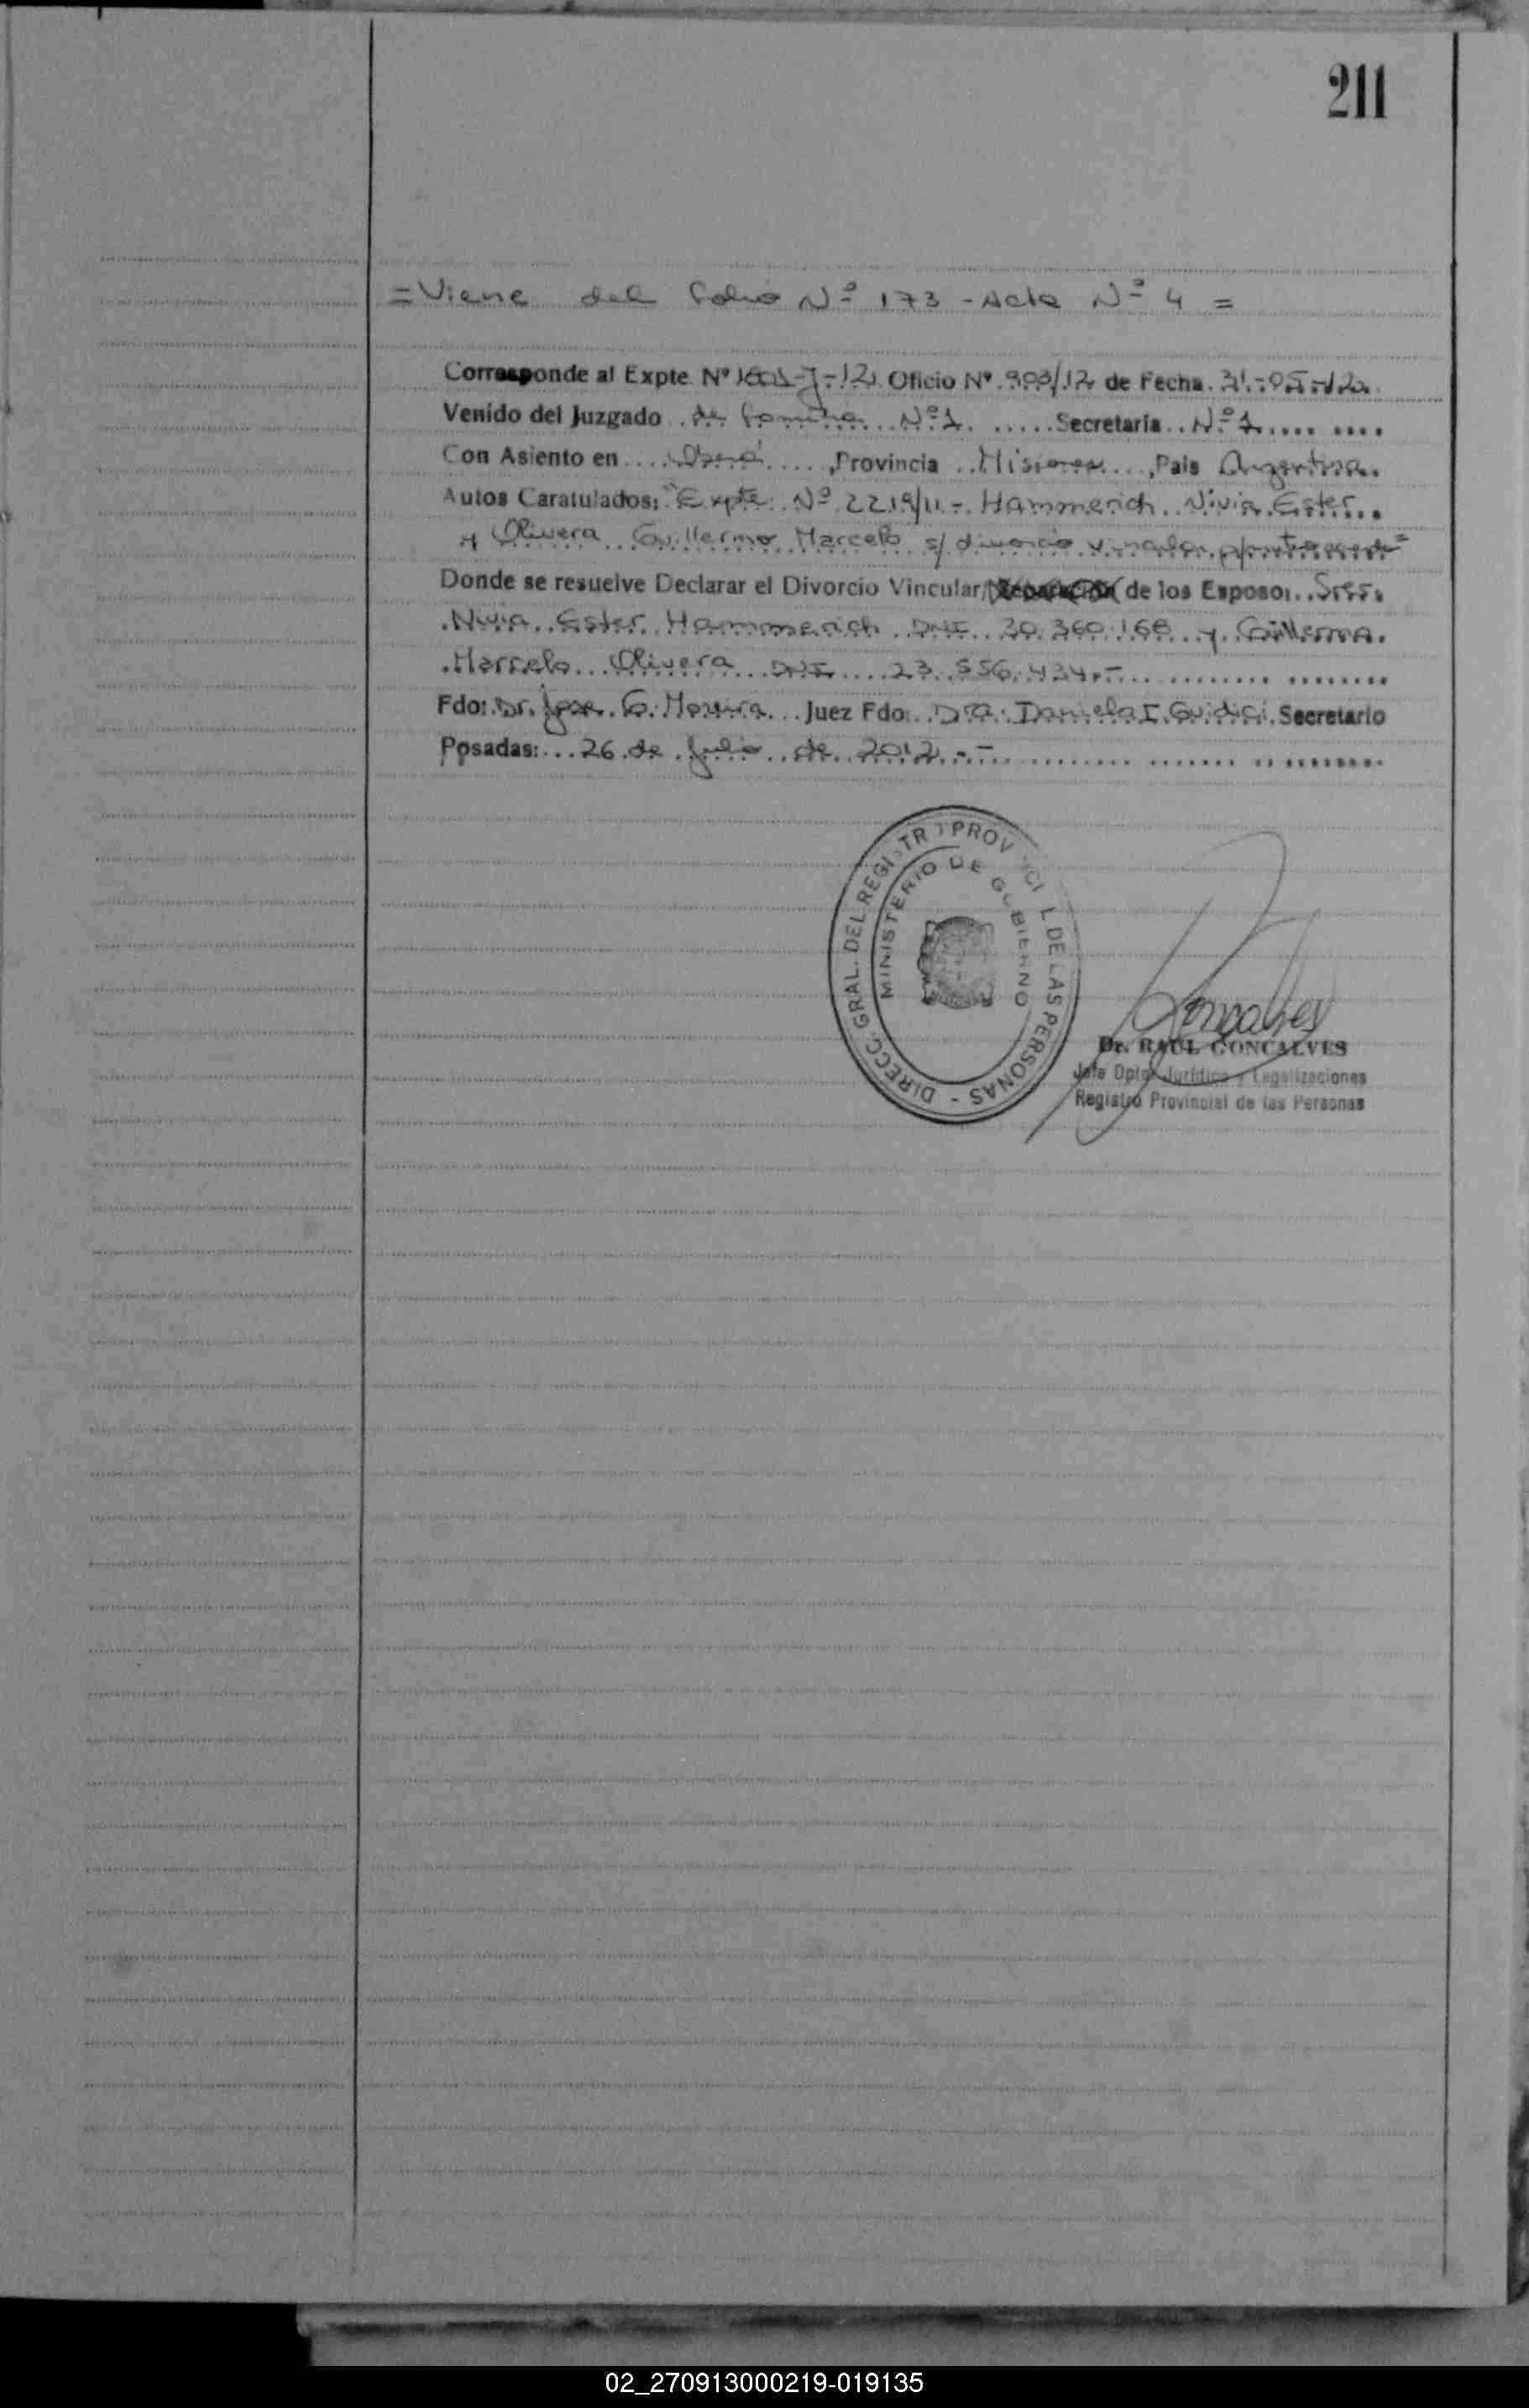 211
= Viene del folio Nº 173 - Acta Nº 4 =
Corresponde al Expte. Nº -J-12 Oficio Nº 903/12 de Fecha. 31-05-12
Venido del Juzgado de familia Nº 1. Secretaría Nº 1
Con Asiento en Oberá, Provincia Misiones, País Argentina.
Autos Caratulados: "Expte. Nº 2219/11 - Hammerich Nivia Ester
y Olivera Guillermo Marcelo s/ divorcio vincular
Donde se resuelve Declarar el Divorcio Vincular/ de los Esposo: Sres.
Nivia Ester Hammerich DNI 30.360.168 y Guillermo
Marcelo Olivera DNI 23.556.434.-
Fdo: Dr. Jose G. Moreira Juez Fdo: Dra. Daniela I. Guidici Secretario
Posadas: 26 de Julio de 2012.-
DIRECC. GRAL. DEL REGISTRO PROVINCIAL DE LAS PERSONAS -
MINISTERIO DE GOBIERNO
Goncalves
Dr. RAUL GONCALVES
Jefe Dpto. Jurídico y Legalizaciones
Registro Provincial de las Personas
02_270913000219-019135